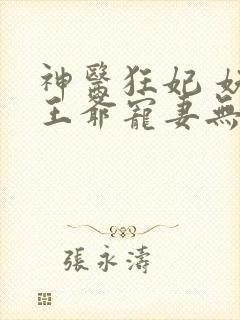 神醫狂妃
王爺寵妻無
張永濤